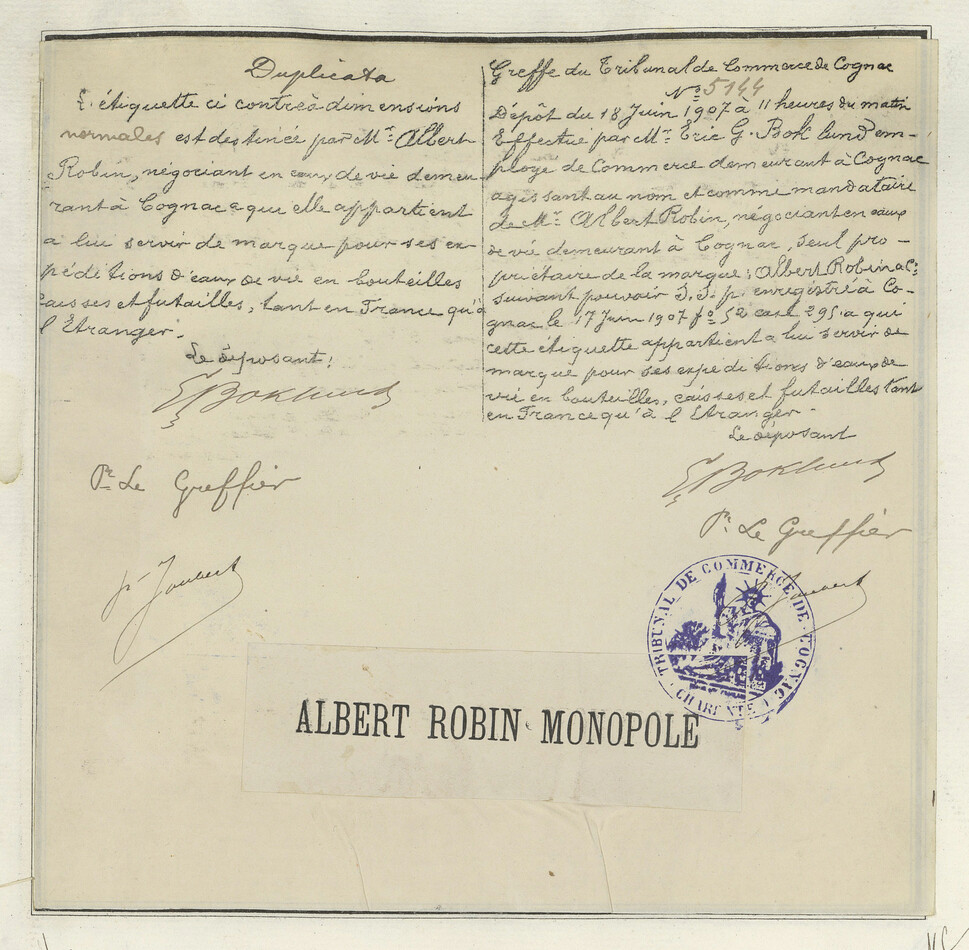 Duplicata
L'étiquette ci contre à dimensions
normales est destinée par Mr. Albert
Robin, négociant en eaux de vie demeu-
rant à Cognac a qui elle appartient
a lui servir de marque pour ses ex-
péditions d'eaux de vie en bouteilles
caisses et futailles, tant en France qu'à
l'Etranger.
Le déposant:
E Boklund
Pr. Le Greffier
Joubert
Greffe du Tribunal de Commerce de Cognac
No 5144
Dépôt du 18 Juin 1907 à 11 heures du matin
Effectué par Mr. Eric G. Boklund em-
ployé de Commerce demeurant à Cognac
agissant au nom et comme mandataire
de Mr. Albert Robin, négociant en eaux
de vie demeurant à Cognac, seul pro-
priétaire de la marque: Albert Robin & Cie
suivant pouvoir S.S.p. enregistré à Co-
gnac le 17 Juin 1907 fo 52 case 295 a qui
cette étiquette appartient a lui servir de
marque pour ses expéditions d'eaux de
vie en bouteilles, caisses et futailles tant
en France qu'à l'Etranger.
Le déposant
E Boklund
Pr. Le Greffier
Joubert
TRIBUNAL DE COMMERCE DE COGNAC
CHARENTE
ALBERT ROBIN MONOPOLE